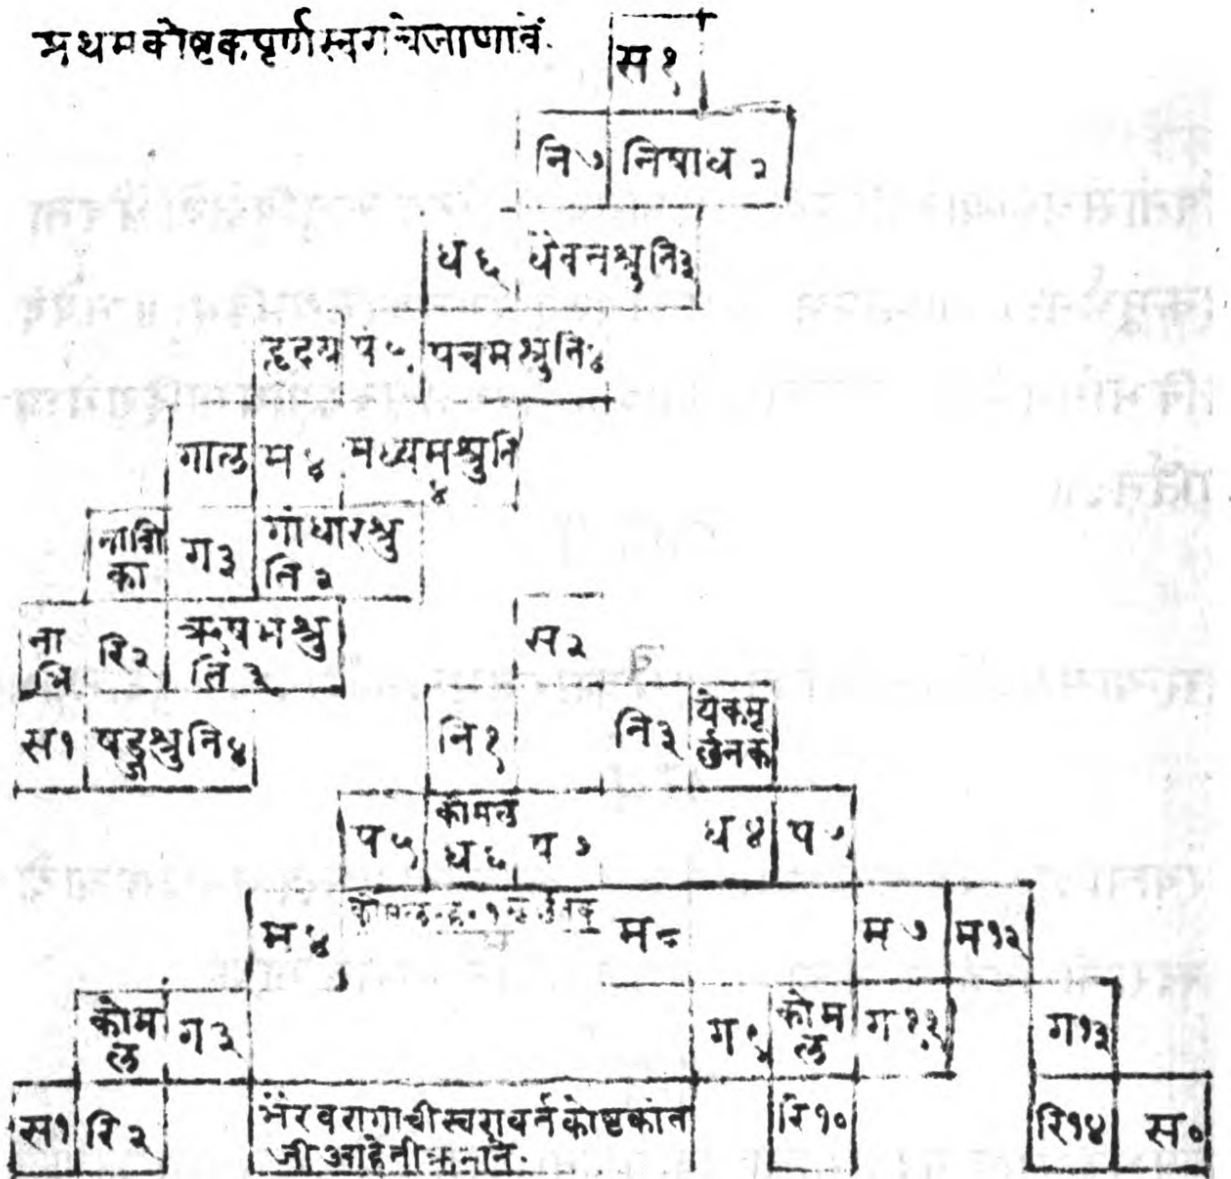 प्रथमकोष्टकपूर्णस्वराचेजाणावें.
स १
नि ७ निषाध २
ध ६ धैवतश्रुति ३
हृदय प ५ पंचमश्रुति ४
गाल म ४ मध्यमश्रुति ४
नासिका ग ३ गांधारश्रुति २
नाभि रि २ ऋषभश्रुति ३
स १ षड्जश्रुति ४
स २
नि १ नि ३ येकमूर्छनक
प ५ कोमल ध ६ प ७ ध ४ प
म ४ म म ७ म १२
कोमल ग ३ ग कोमल ग ११ ग १३
स १ रि २ भैरवरागाचीस्वरावर्तकोष्टकांत रि १० रि १४ स ०
जीआहेतीक्रमानें.